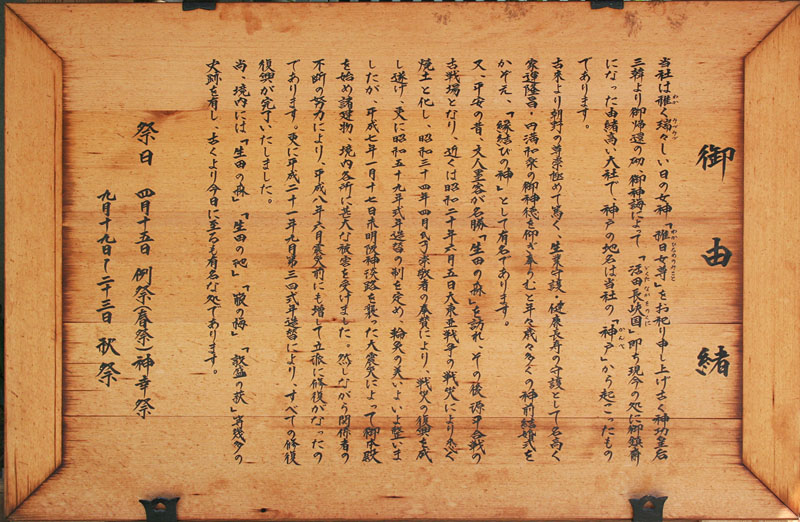 御由緒
当社は稚く瑞々しい日の女神「稚日女尊」をお祀り申し上げ古く神功皇后
三韓より御帰還の砌、御神誨によって「活田長峡国」即ち現今の処に御鎮斎
になった由緒高い大社で、神戸の地名は当社の「神戸」から起こったもの
であります。
古来より朝野の尊崇極めて篤く、生業守護・健康長寿の守護として名高く
家運隆昌・円満和楽の御神徳を仰ぎ奉らむと年々歳々多くの神前結婚式を
かぞえ、「縁結びの神」として有名であります。
又、平安の昔、文人墨客が名勝「生田の森」を訪れ、その後源平合戦の
古戦場となり、近くは昭和二十年六月五日大東亜戦争の戦災により悉く
焼土と化し、昭和三十四年四月氏子崇敬者の奉賛により、戦災の復興を成
し遂げ、更に昭和五十九年式年造替の制を定め、輪奐の美いよいよ整いま
したが、平成七年一月十七日未明阪神淡路を襲った大震災によって御本殿
を始め諸建物、境内各所に甚大な被害を受けました。然しながら関係者の
不断の努力により、平成八年六月震災前にも増して立派に修復がなったの
であります。更に平成二十一年九月第三回式年造替により、すべての修復
復興が完了いたしました。
尚、境内には「生田の森」「生田の池」「箙の梅」「敦盛の萩」等幾多の
史跡を有し、古くより今日に至るも有名な処であります。
祭日 四月十五日 例祭(春祭)神幸祭
九月十九日〜二十三日 秋祭